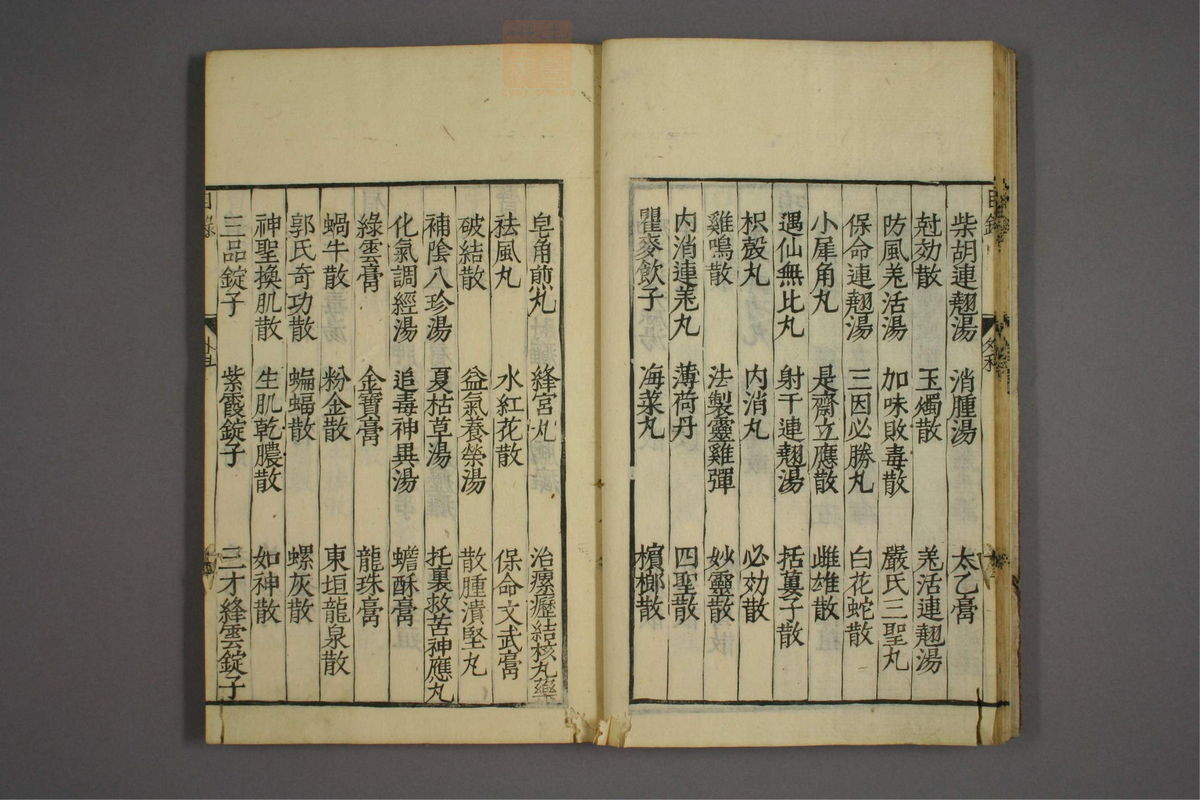 目錄
柴胡連翹湯 消腫湯 太乙膏
尅効散 玉燭散 羌活連翹湯
防風羌活湯 加味敗毒散 嚴氏三聖丸
保命連翹湯 三因必勝丸 白花蛇散
小犀角丸 是齋立應散 雌雄散
遇仙無比丸 射干連翹湯 括蔞子散
枳殼丸 內消丸 必効散
雞鳴散 法製靈雞彈 妙靈散
內消連羌丸 薄荷丹 四聖散
瞿麥飲子 海菜丸 檳榔散
皂角煎丸 縫宮丸 治瘰癧結核丸藥
祛風丸 水紅花散 保命文武膏
破結散 益氣養榮湯 散腫潰堅丸
補陰八珍湯 夏枯草湯 托裏救苦神應丸
化氣調經湯 追毒神異湯 蟾酥膏
綠雲膏 金寶膏 龍珠膏
蝸牛散 粉金散 東垣龍泉散
郭氏奇功散 蝙蝠散 螺灰散
神聖換肌散 生肌乾膿散 如神散
三品錠子 紫霞錠子 三才絳雲錠子
目錄